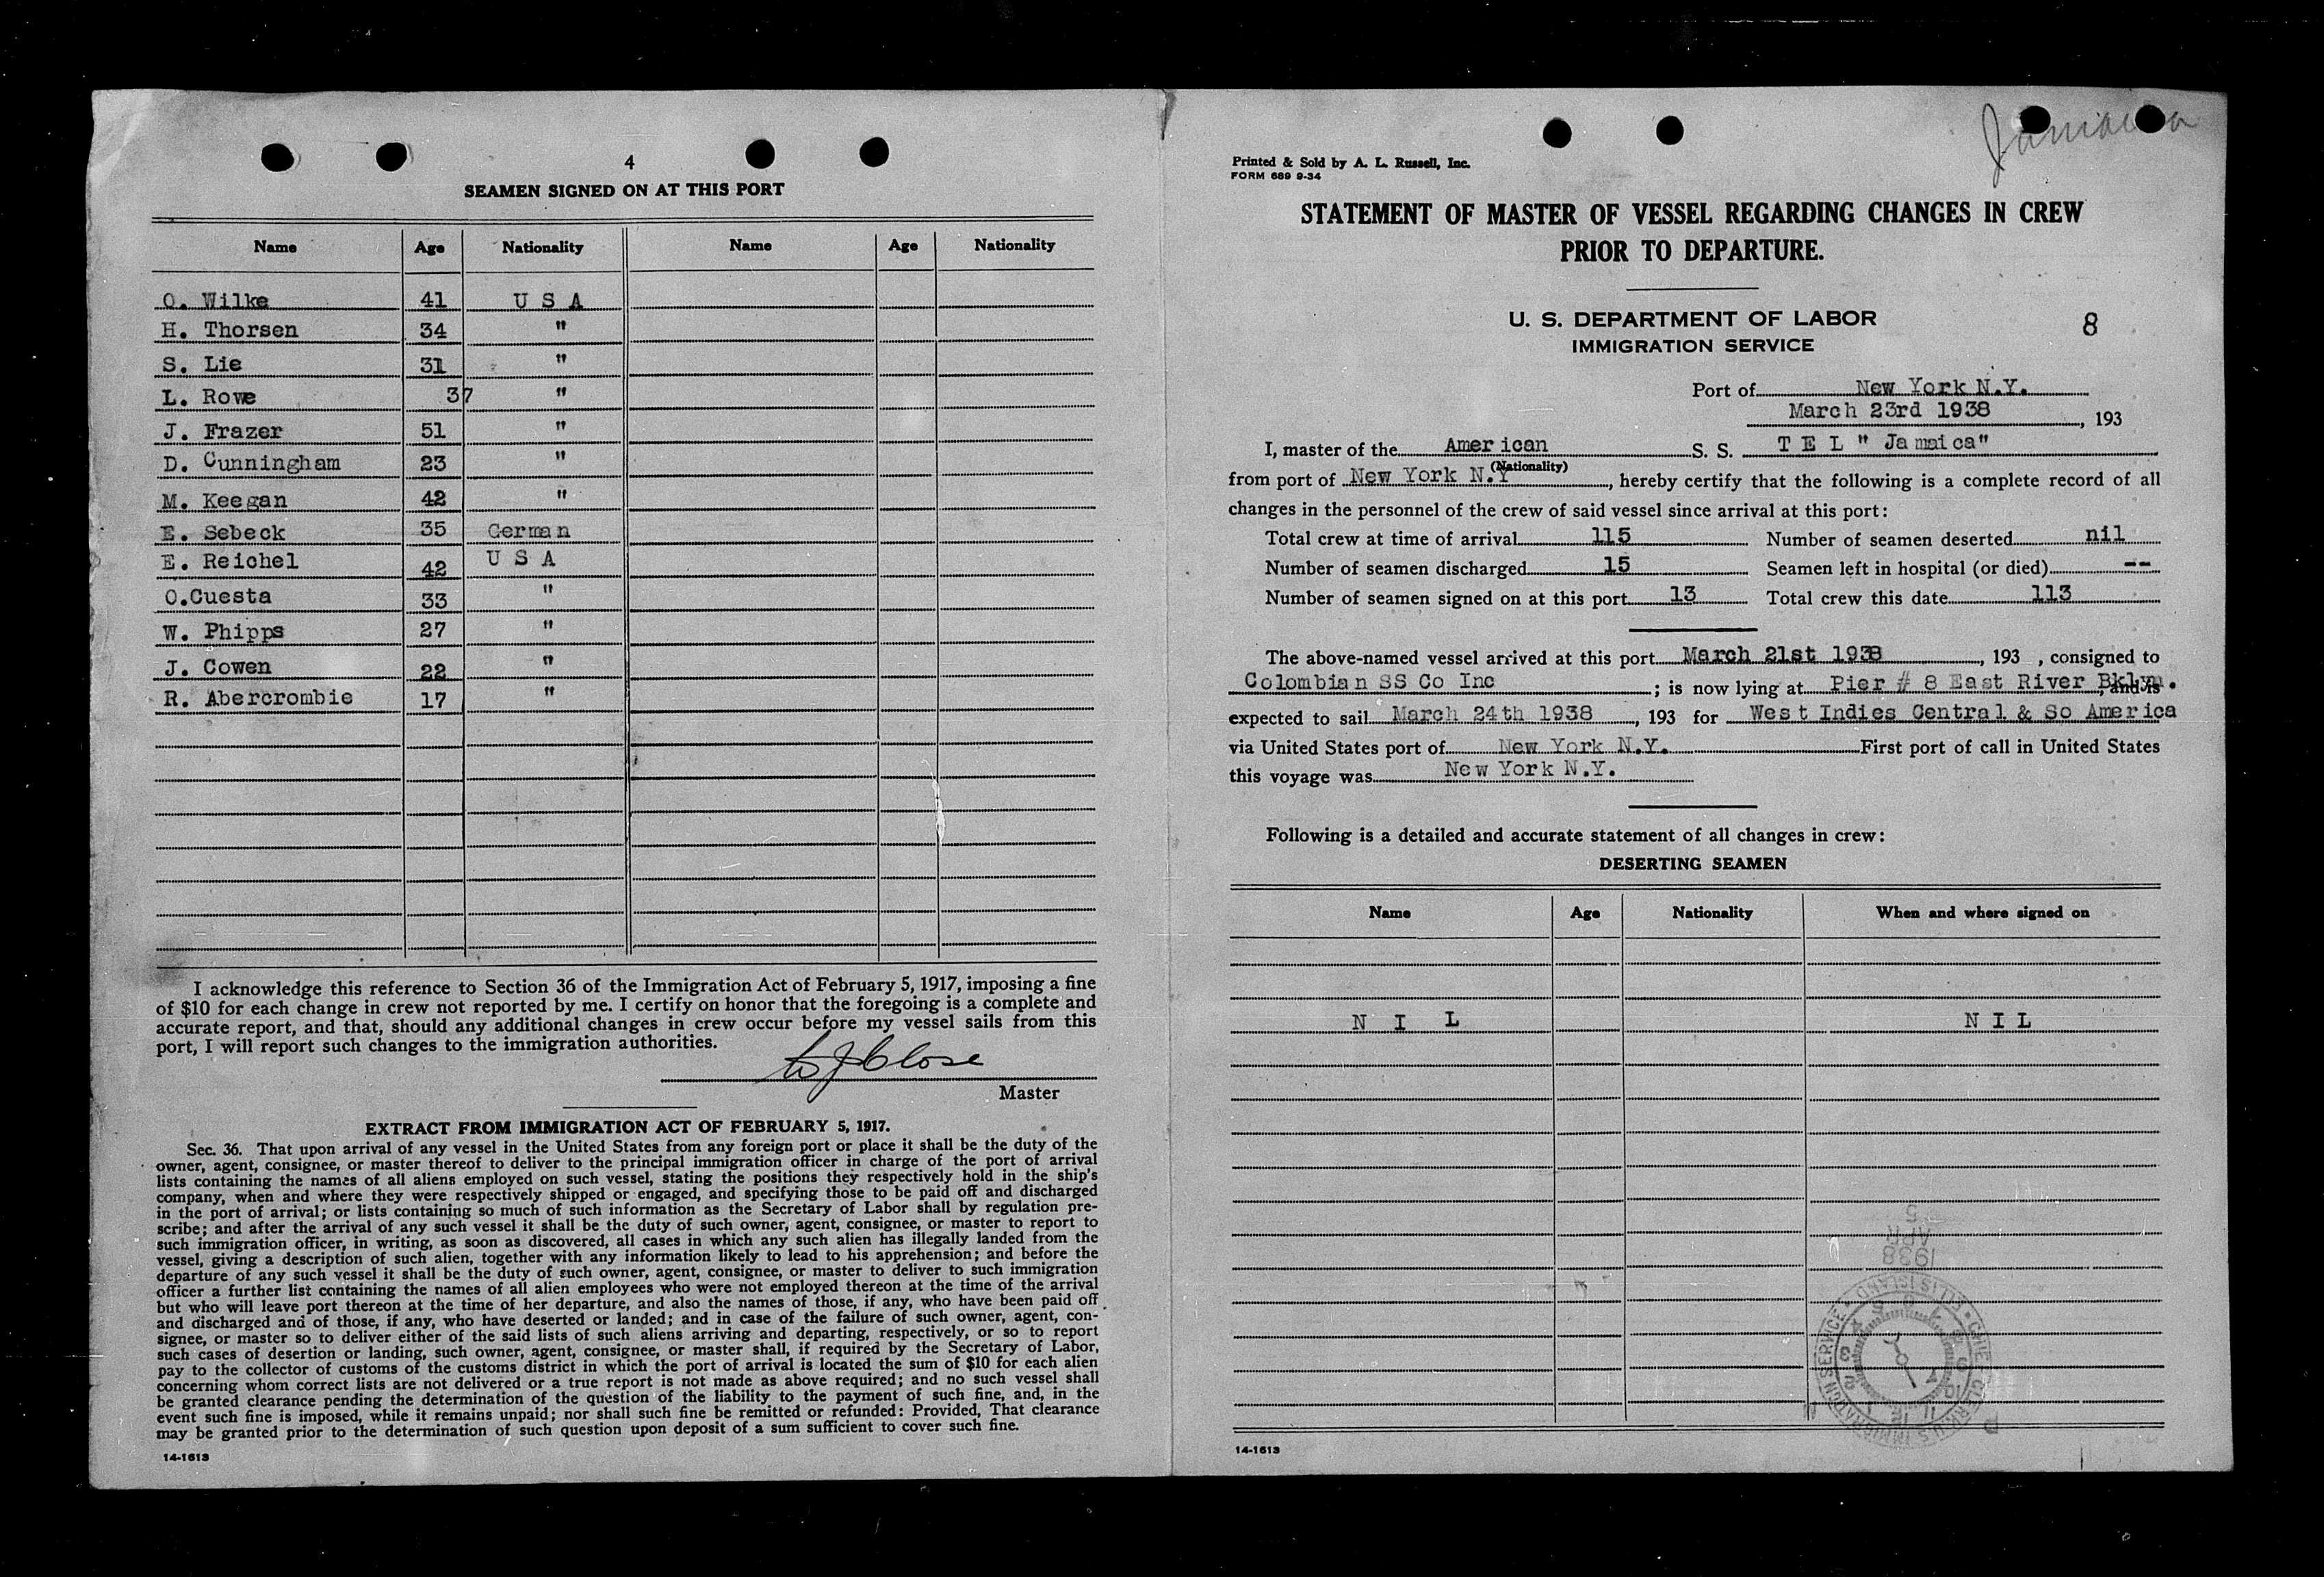 4
SEAMEN SIGNED ON AT THIS PORT
Name Age Nationality Name Age Nationality
O. Wilke 41 U S A
H. Thorsen 34 "
S. Lie 31 "
L. Rowe 37 "
J. Frazer 51 "
D. Cunningham 23 "
M. Keegan 42 "
E. Sebeck 35 German
E. Reichel 42 U S A
O.Cuesta 33 "
W. Phipps 27 "
J. Cowen 22 "
R. Abercrombie 17 "
I acknowledge this reference to Section 36 of the Immigration Act of February 5, 1917, imposing a fine
of $10 for each change in crew not reported by me. I certify on honor that the foregoing is a complete and
accurate report, and that, should any additional changes in crew occur before my vessel sails from this
port, I will report such changes to the immigration authorities.
W J Close
Master
EXTRACT FROM IMMIGRATION ACT OF FEBRUARY 5, 1917.
Sec. 36. That upon arrival of any vessel in the United States from any foreign port or place it shall be the duty of the
owner, agent, consignee, or master thereof to deliver to the principal immigration officer in charge of the port of arrival
lists containing the names of all aliens employed on such vessel, stating the positions they respectively hold in the ship's
company, when and where they were respectively shipped or engaged, and specifying those to be paid off and discharged
in the port of arrival; or lists containing so much of such information as the Secretary of Labor shall by regulation pre-
scribe; and after the arrival of any such vessel it shall be the duty of such owner, agent, consignee, or master to report to
such immigration officer, in writing, as soon as discovered, all cases in which any such alien has illegally landed from the
vessel, giving a description of such alien, together with any information likely to lead to his apprehension; and before the
departure of any such vessel it shall be the duty of such owner, agent, consignee, or master to deliver to such immigration
officer a further list containing the names of all alien employees who were not employed thereon at the time of the arrival
but who will leave port thereon at the time of her departure, and also the names of those, if any, who have been paid off
and discharged and of those, if any, who have deserted or landed; and in case of the failure of such owner, agent, con-
signee, or master so to deliver either of the said lists of such aliens arriving and departing, respectively, or so to report
such cases of desertion or landing, such owner, agent, consignee, or master shall, if required by the Secretary of Labor,
pay to the collector of customs of the customs district in which the port of arrival is located the sum of $10 for each alien
concerning whom correct lists are not delivered or a true report is not made as above required; and no such vessel shall
be granted clearance pending the determination of the question of the liability to the payment of such fine, and, in the
event such fine is imposed, while it remains unpaid; nor shall such fine be remitted or refunded: Provided, That clearance
may be granted prior to the determination of such question upon deposit of a sum sufficient to cover such fine.
14-1613
Jamaica
Printed & Sold by A. L. Russell, Inc.
FORM 689 9-34
STATEMENT OF MASTER OF VESSEL REGARDING CHANGES IN CREW
PRIOR TO DEPARTURE.
U. S. DEPARTMENT OF LABOR
IMMIGRATION SERVICE
8
Port of New York N.Y.
March 23rd 1938, 193
I, master of the American S. S. T E L " Jamaica"
(Nationality)
from port of New York N.Y, hereby certify that the following is a complete record of all
changes in the personnel of the crew of said vessel since arrival at this port:
Total crew at time of arrival 115 Number of seamen deserted nil
Number of seamen discharged 15 Seamen left in hospital (or died) --
Number of seamen signed on at this port 13 Total crew this date 113
The above-named vessel arrived at this port March 21st 1938, 193 , consigned to
Colombian SS Co Inc ; is now lying at Pier # 8 East River Bklyn. , and is
expected to sail March 24th 1938, 193 for West Indies Central & So America
via United States port of New York N.Y. First port of call in United States
this voyage was New York N.Y.
Following is a detailed and accurate statement of all changes in crew:
DESERTING SEAMEN
Name Age Nationality When and where signed on
N I L N I L
5
APR
1938
14-1613